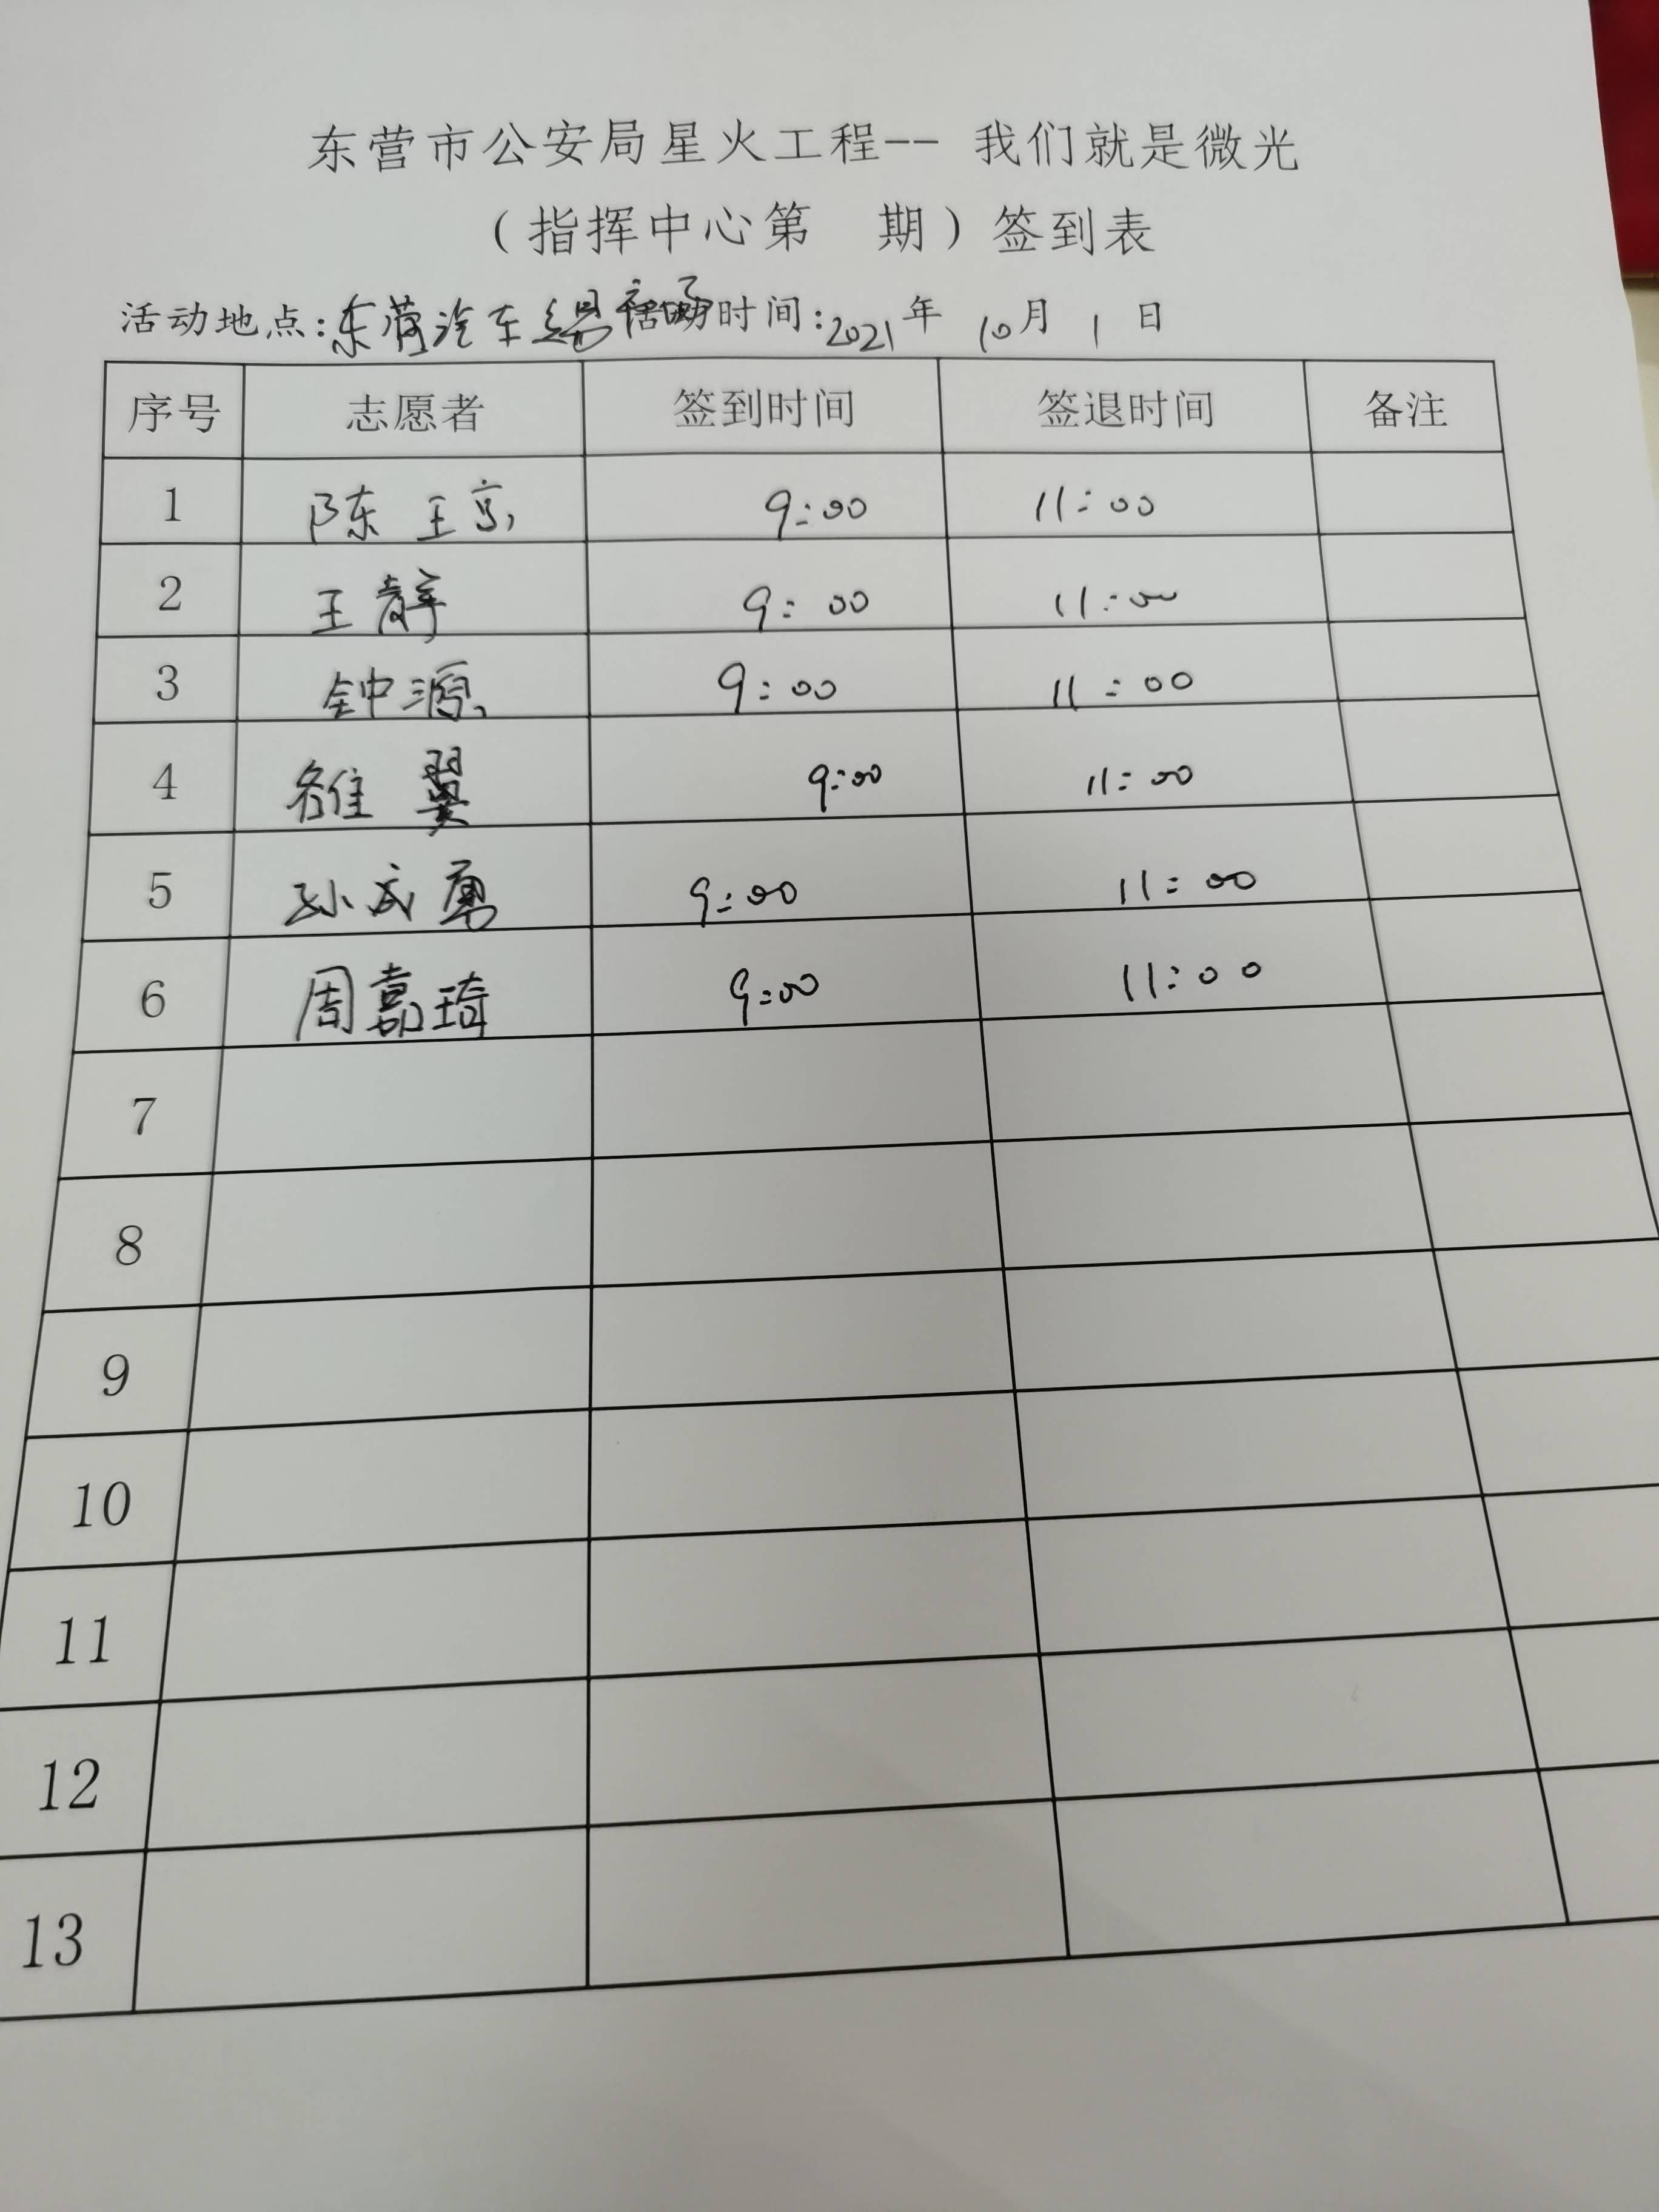 东营市公安局星火工程-- 我们就是微光
（指挥中心第 期）签到表
活动地点:东营汽车 活动时间:2021年 10月 1 日
序号 志愿者 签到时间 签退时间 备注
1 陈 9:00 11:00
2 王静 9:00 11:00
3 钟源 9:00 11:00
4 翼 9:00 11:00
5 孙成勇 9:00 11:00
6 周嘉琦 9:00 11:00
7
8
9
10
11
12
13